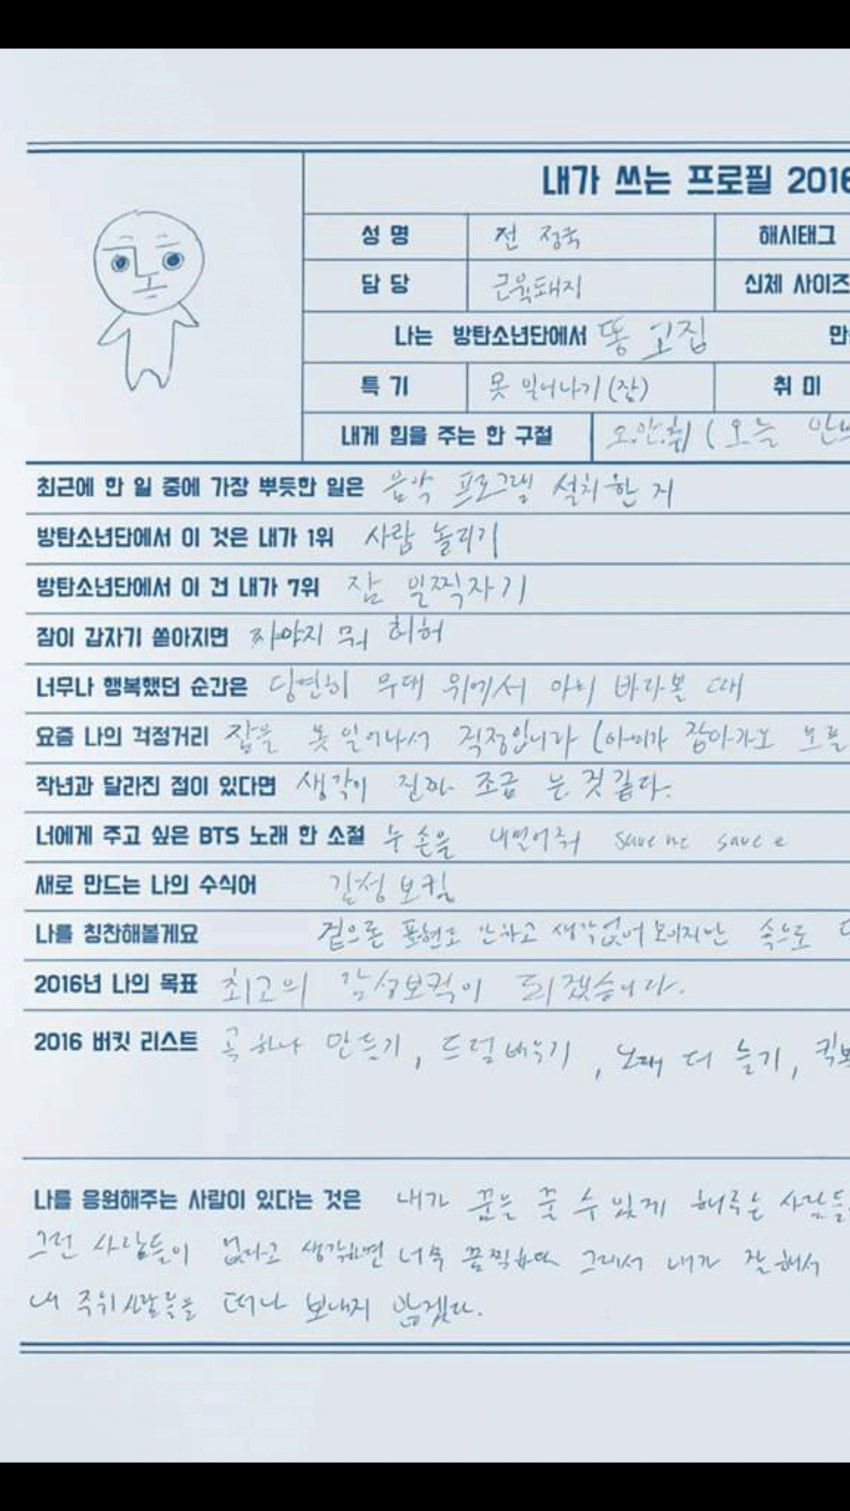 내가 쓰는 프로필 2016
성명 전 정국 해시태그
담당 근육돼지 신체 사이즈
나는 방탄소년단에서 똥 고집 만
특기 못 일어나기(잠) 취미
내게 힘을 주는 한 구절 오.안.휘 ( 오늘
최근에 한 일 중에 가장 뿌듯한 일은 음악 프로그램 설치한 거
방탄소년단에서 이 것은 내가 1위 사람 놀리기
방탄소년단에서 이 건 내가 7위 잠 일찍자기
잠이 갑자기 쏟아지면 자야지 뭐 허허
너무나 행복했던 순간은 당연히 무대 위에서 아미 바라볼 때
요즘 나의 걱정거리 잠을 못 일어나서 걱정입니다 (아미가 잠아가
작년과 달라진 점이 있다면 생각이 진짜 조금 는 것 같다.
너에게 주고 싶은 BTS 노래 한 소절 두 손을 내밀어줘 save me save
새로 만드는 나의 수식어 감성 보컬
나를 칭찬해볼게요 겉으론 표현도 안하고 생각없어 보이지만 속으로
2016년 나의 목표 최고의 감성보컬이 되겠습니다.
2016 버킷 리스트 곡 하나 만들기, 드럼 배우기, 노래 더 늘기,
나를 응원해주는 사람이 있다는 것은 내가 꿈을 꿀 수 있게 해주는 사람들
그런 사람들이 없다고 생각하면 너무 끔찍하다 그래서 내가 잘 해서
내 주위사람들을 떠나 보내지 않겠다.